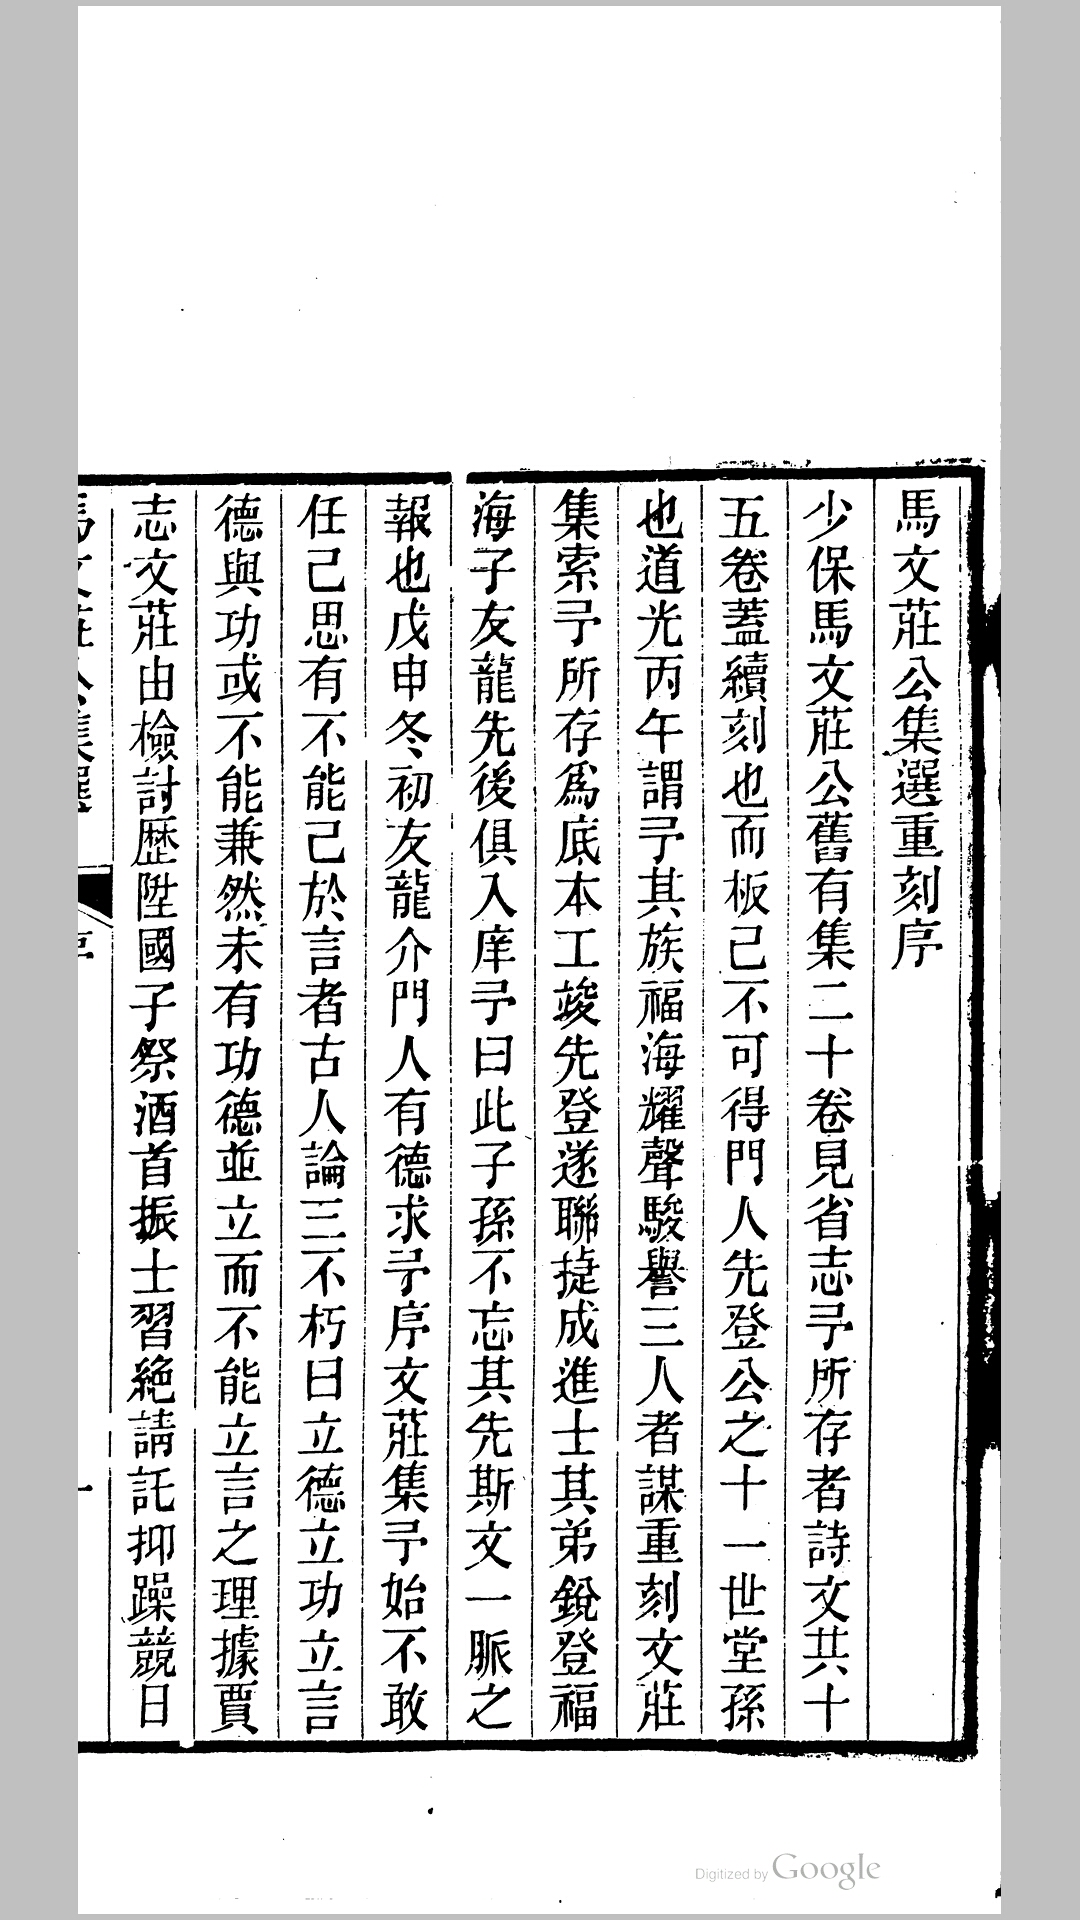 馬文莊公集選重刻序
少保馬文莊公舊有集二十卷見省志予所存者詩文共十
五卷蓋續刻也而板已不可得門人先登公之十一世堂孫
也道光丙午謂予其族福海耀聲駿譽三人者謀重刻文莊
集索予所存爲底本工竣先登遂聯捷成進士其弟銳登福
海子友龍先後俱入庠予曰此子孫不忘其先斯文一脈之
報也戊申冬初友龍介門人有德求予序文莊集予始不敢
任已思有不能已於言者古人論三不朽曰立德立功立言
德與功或不能兼然未有功德並立而不能立言之理據賈
志文莊由檢討歷陞國子祭酒首振士習絶請託抑躁競日
馬文莊公集選
序
一
Digitized by Google